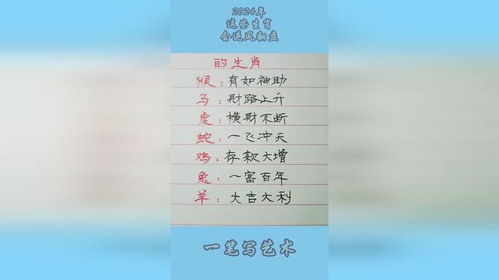 2024年
这些生肖
会逆风翻盘
的生肖
猴：有如神助
马：财路上升
虎：横财不断
蛇：一飞冲天
鸡：存款大增
兔：一富百年
羊：大吉大利
一笔写艺术